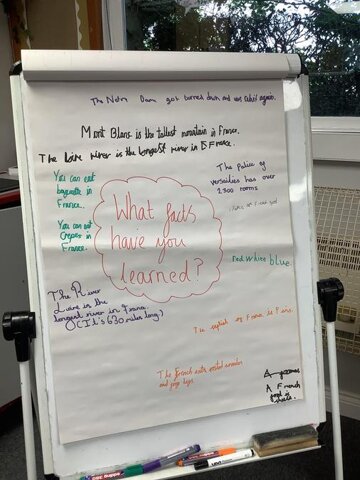 The Notre Dame got burned down and was rebuilt again.
Mont Blanc is the tallest mountain in France.
The Loire river is the longest river in France.
You can eat
baguette in
France.
The palace of
versailles has over
2300 rooms
You can eat
Crepes in
France.
What facts
have you
learned?
Red White blue
The River
Loire is the
longest river in France
(It's 630 miles long)
The capital of France is Paris.
The French eats
and frogs legs.
A French
food is
snails.